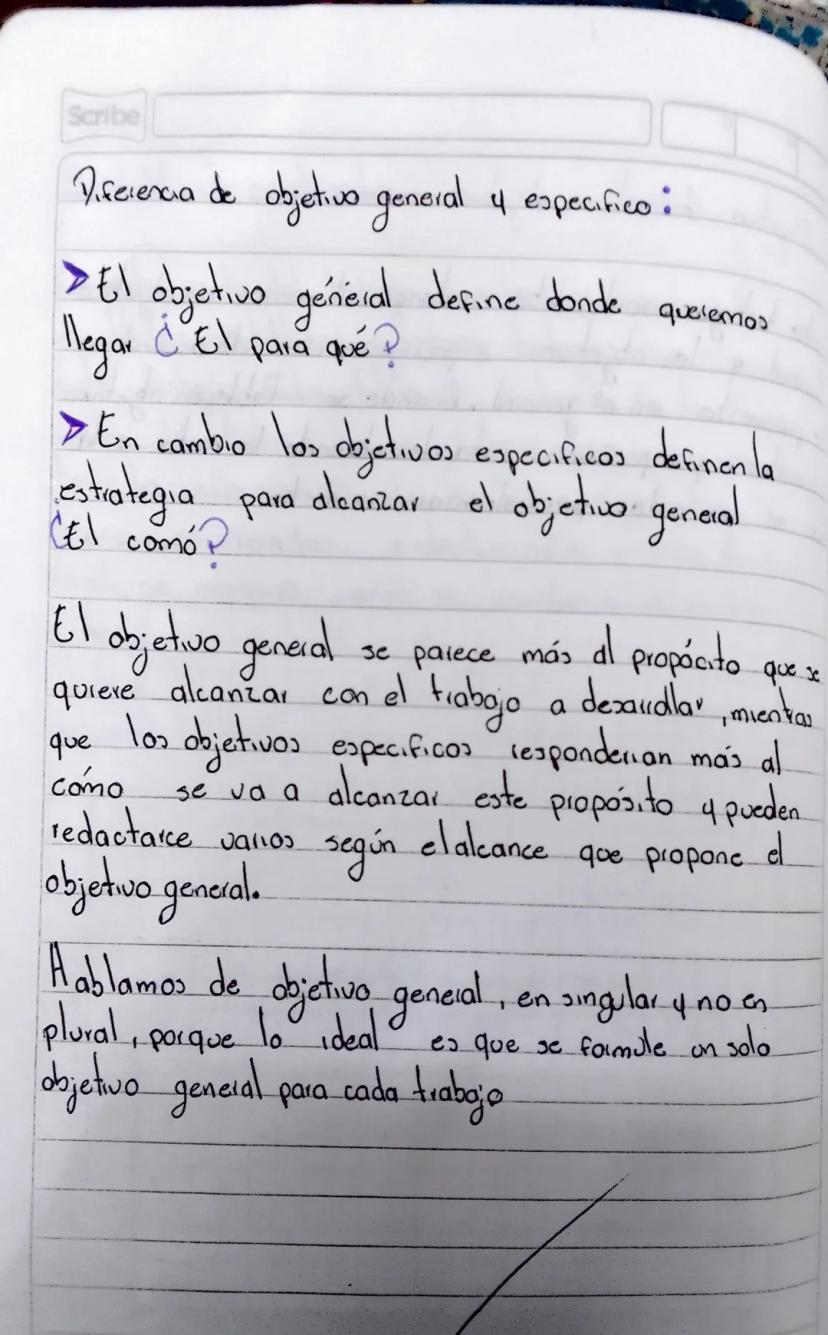 Scribe
Diferencia de objetivo general y especifico:
➤ El objetivo géneral define donde queremos
llegar ¿El para qué?
➤ En cambio los objetivos especificos definen la
estrategia para alcanzar el objetivo general
¿El comó?
El objetivo general se parece más al propócito que se
quiere alcanzar con el trabajo a desarrollar, mientras
que los objetivos especificos responderian más al
cómo se va a alcanzar este propósito y pueden
redactarce varios según el alcance que propone el
objetivo general.
Hablamos de objetivo general, en singular y no en
plural, porque lo ideal es que se formule un solo
objetivo general para cada trabajo